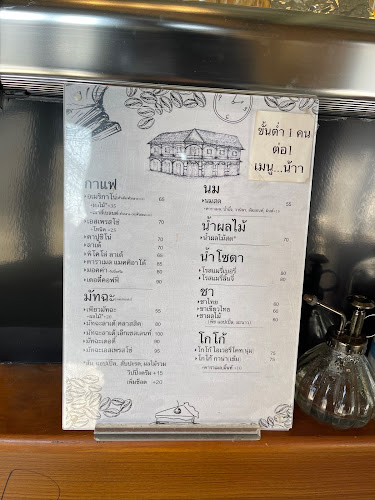 ขั้นต่ำ 1 คน
ต่อ!
เมนู...น้าา
กาแฟ
อเมริกาโน่ 65
เอสเพรสโซ่ 70
คาปูชิโน่ 70
ลาเต้ 70
พิโคโล่ ลาเต้ 60
คาราเมล แมคคิอาโต้ 85
มอคค่า 80
เดอตี้คอฟฟี่ 80
มัทฉะ
เพียวมัทฉะ
มัทฉะลาเต้ คลาสสิค 80
มัทฉะลาเต้ เอ็กซเลนท์ 100
มัทฉะเดอตี้ 90
มัทฉะเอสเพรสโซ่ 95
วิปปิ้งครีม +15
เพิ่มช็อต +20
นม
นมสด 55
น้ำผลไม้
น้ำผลไม้สด* 70
น้ำโซดา
โรสแมรี่เบอรี่ 80
โรสแมรี่ลิ้นจี่ 80
ชา
ชาไทย 60
ชาเขียวไทย 60
ชาผลไม้ 60
โกโก้
โกโก้ ไอเวอรี่โคท นุ่ม 75
โกโก้ กาน่า เข้ม 75